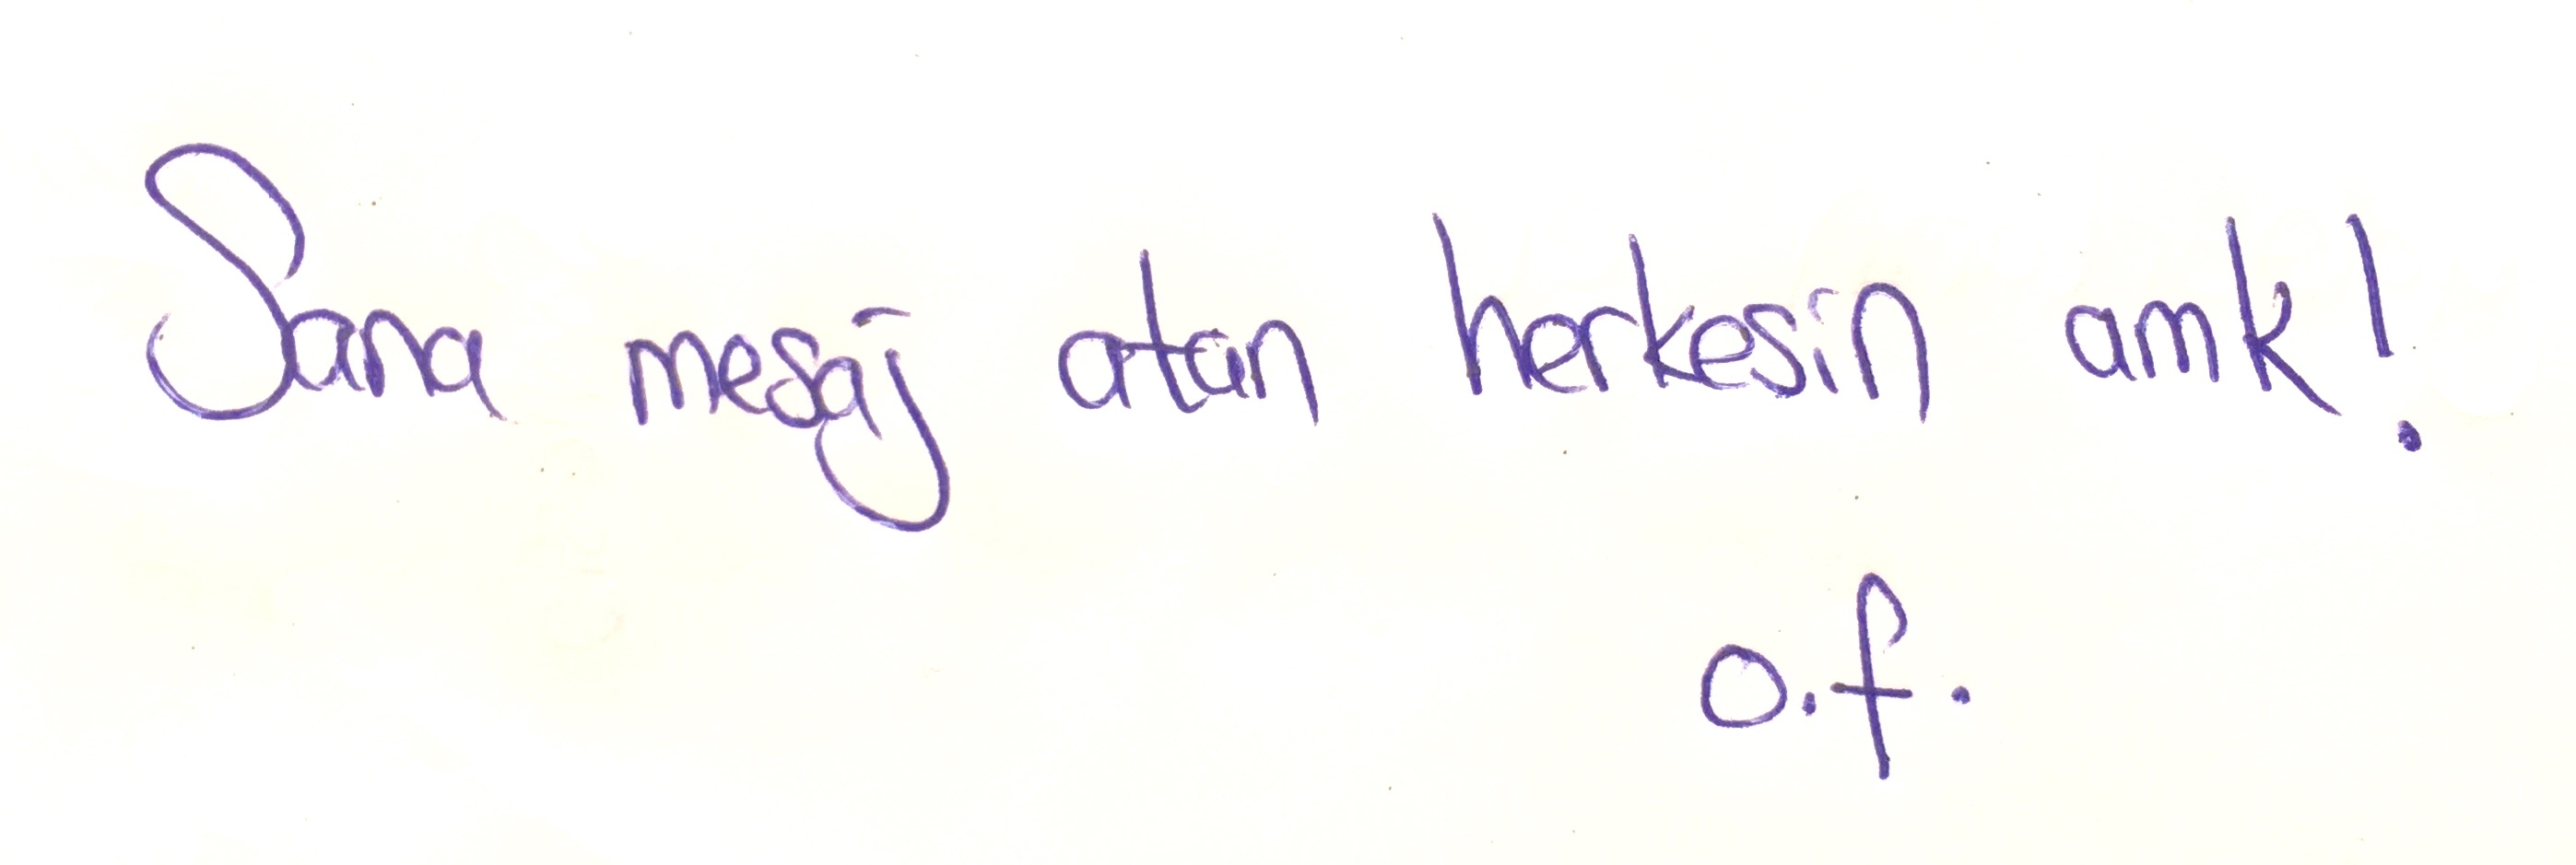 Sana mesaj atan herkesin amk!
o.f.